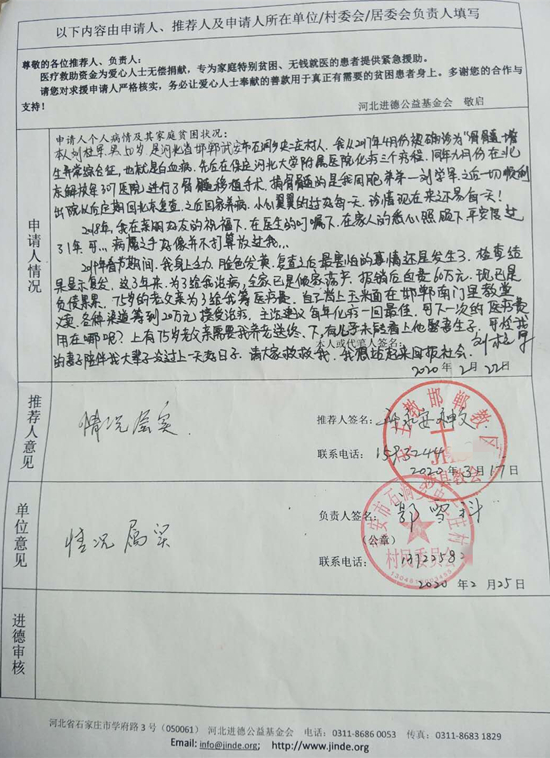 以下内容由申请人、推荐人及申请人所在单位/村委会/居委会负责人填写
尊敬的各位推荐人、负责人:
医疗救助资金为爱心人士无偿捐献,专为家庭特别贫困、无钱就医的患者提供紧急援助。
请您对求援申请人严格核实,务必让爱心人士奉献的善款用于真正有需要的贫困患者身上。多谢您的合作与
支持!
河北进德公益基金会 敬启
申请人情况
申请人个人病情及其家庭贫困状况:
本人刘桂军 是河北省邯郸武安市石洞乡 庄村人。我从2017年4月份被确诊为“骨髓增
生异常综合征,也就是白血病。先后在保定河北大学附属医院化疗三个疗程。同年九月份在北
京解放军307医院进行了骨髓移植手术。捐骨髓的是我同胞弟弟一刘 军之后一切顺利
出院以后定期回北京复查。之后回家养病,小心翼翼的过好每一天。珍惜现在来之不易每一天!
2018年,我在亲朋好友的祝福下,在医生的叮嘱下,在家人的悉心照顾下,平安度过
了1年。可 病魔之手好像并不打算放过我…
2019年春节期间,我身上无力,脸色发黄,复查之后最害怕的事情还是发生了。检查结
果显示复发,这3年来,为了给我治病,全家已是倾家荡产,报销后自费60万元。现已是
负债累累。75岁的老父亲为了给我筹医疗费,自己背上玉米面在邯郸南门里教堂
义卖,各种渠道筹到20万元接受治疗。主治建议每年化疗一回最佳,可下一次的医疗费
用在哪呢?上有75岁老父亲需要我养老送终,下有儿子未能看上他娶妻生子。可怜我
的妻子陪伴我大半辈子没过上一天好日子。请大家救救我。我想站起来回报社会。
本人或代笔人签名: 刘桂军
2020年2月22日
推荐人意见
情况属实
推荐人签名:
联系电话:
2020年3月17日
天主教邯郸教区
单位意见
情况属实
负责人签名: 郭雪科
(公章)
联系电话:
2020年2月25日
村民委员会
进德审核
河北省石家庄市学府路3号(050061) 河北进德公益基金会 电话:0311-8686 0053 传真:0311-6683 1829
Email: info@jinde.org; http://www.jinde.org